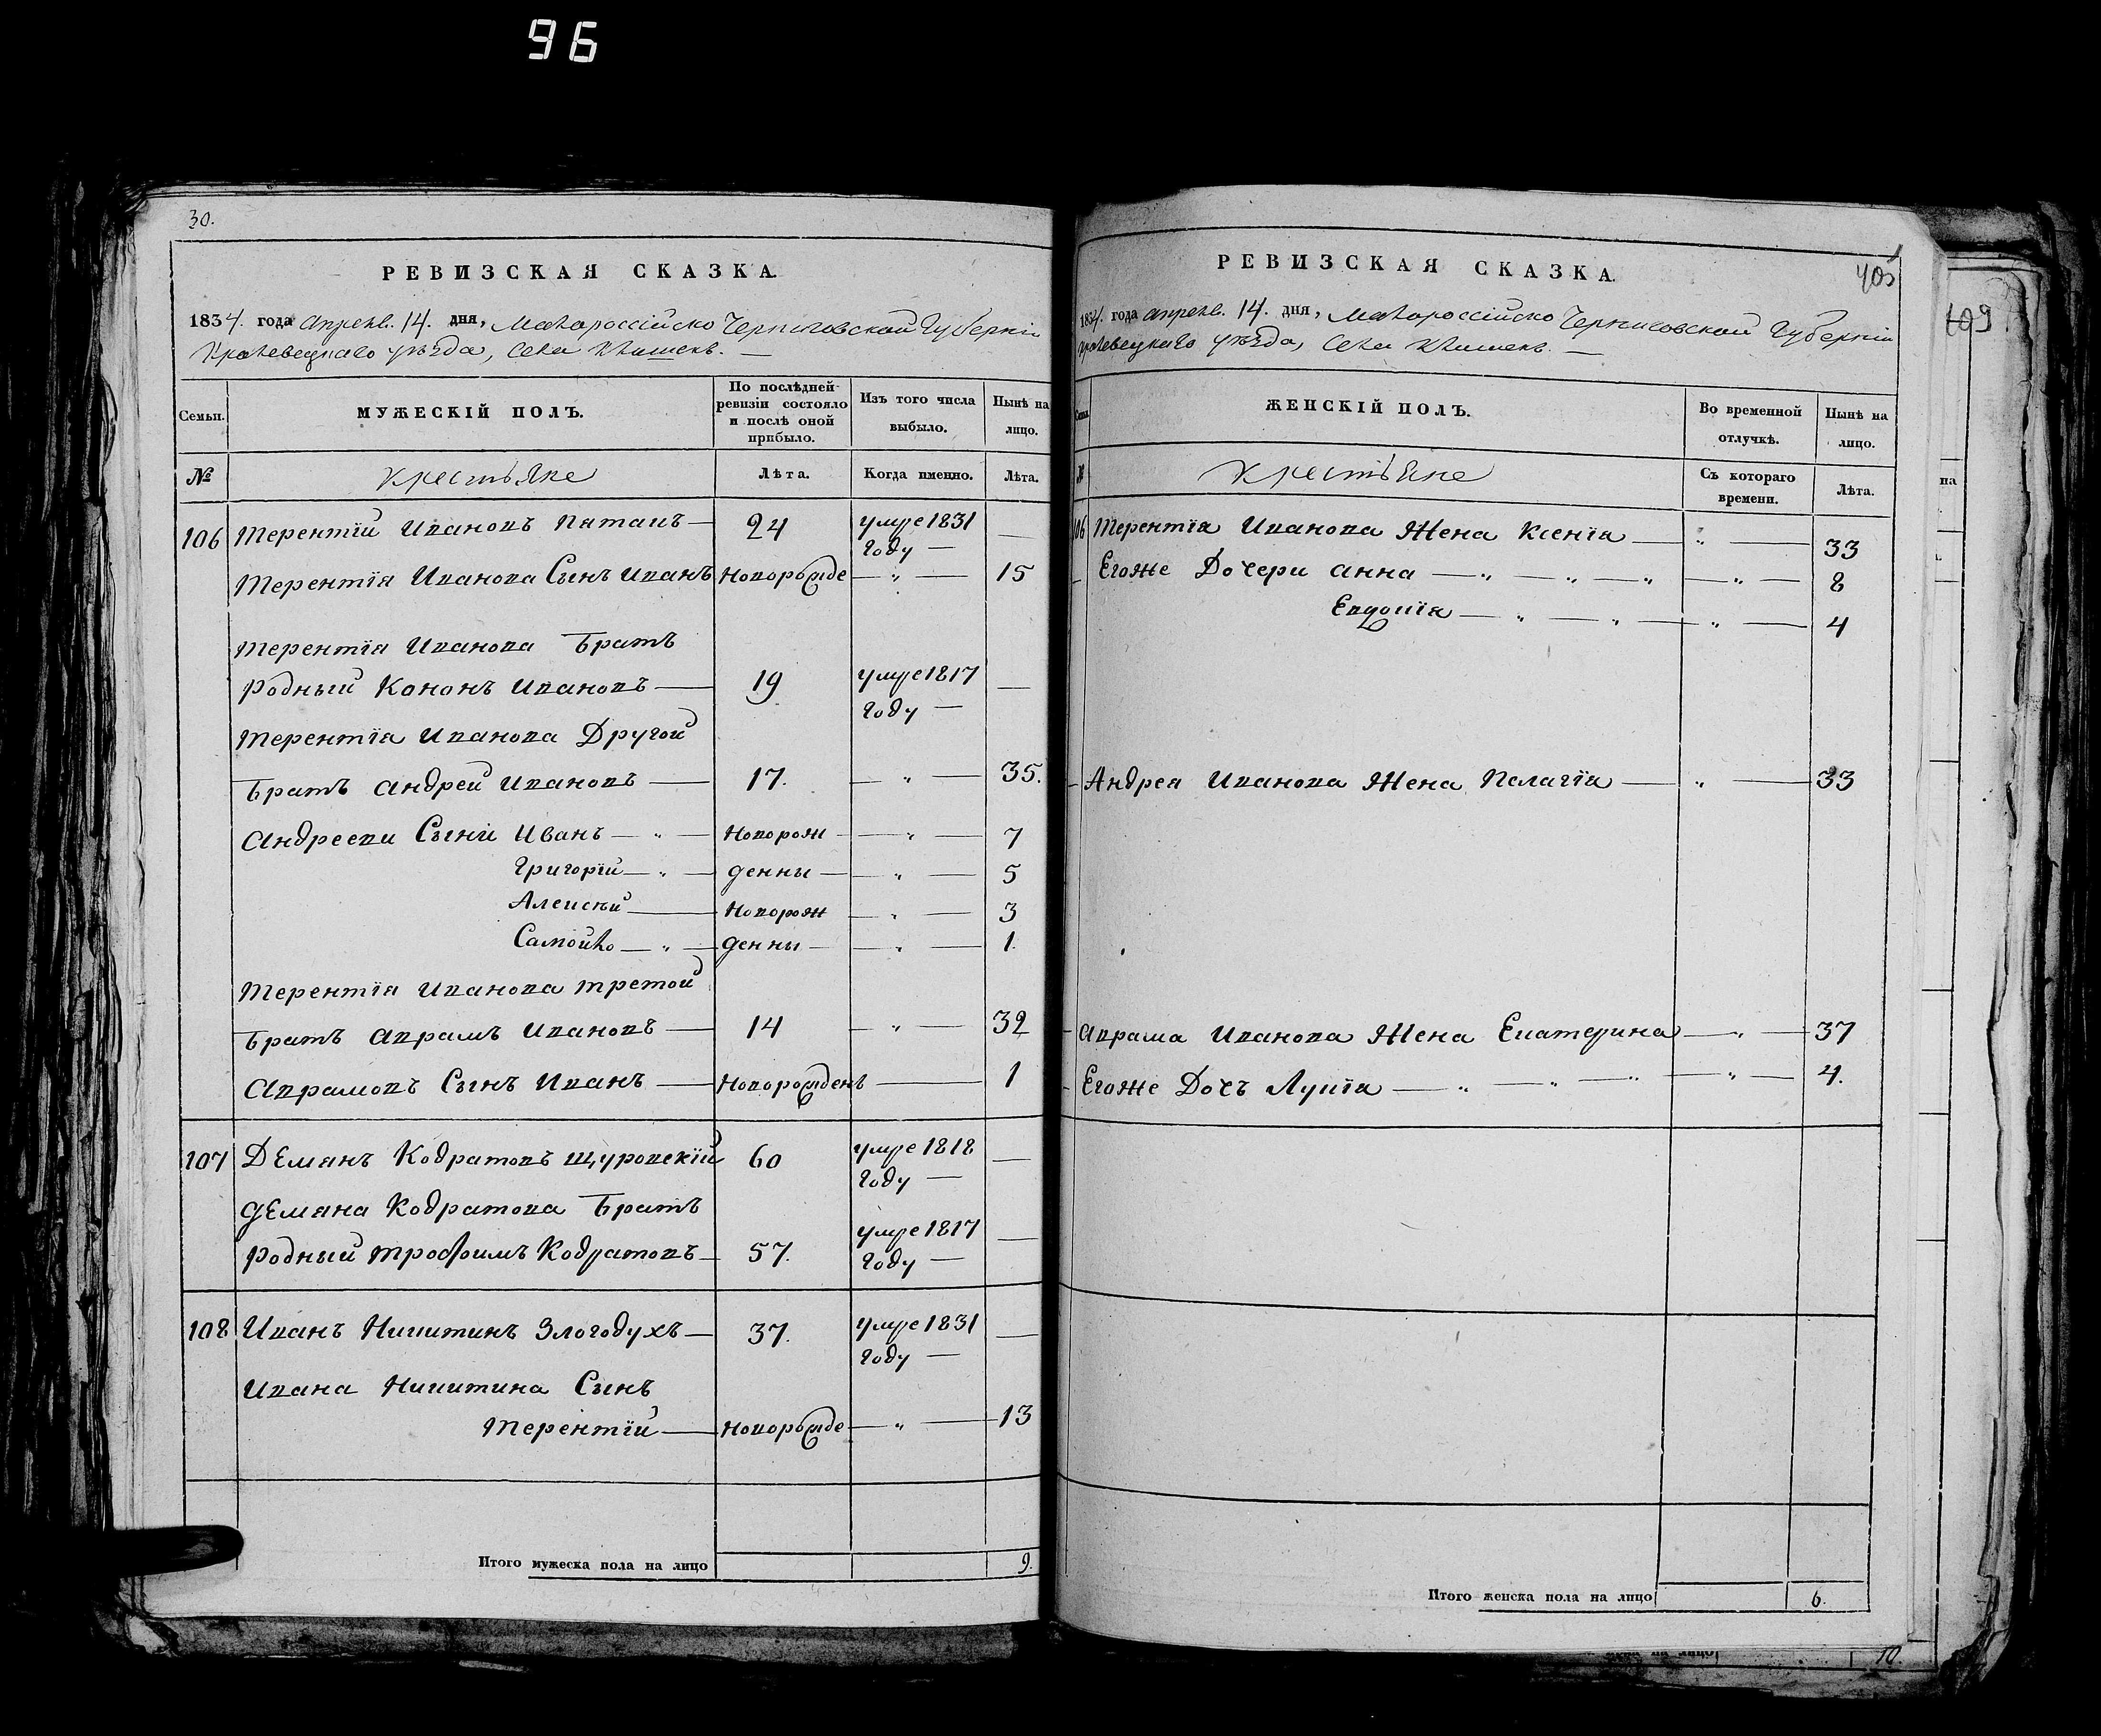 96
30.
РЕВИЗСКАЯ СКАЗКА.
1834. года апрель. 14. дня, Малороссійско Черниговской Губерніи
Кролевецкаго уѣзда, Села Клишекъ. —
Семьи.
МУЖЕСКІЙ ПОЛЪ.
По послѣдней ревизіи состояло и послѣ оной прибыло.
Изъ того числа выбыло.
Нынѣ на лицо.
№
Крестьяне
Лѣта.
Когда именно.
Лѣта.
106 Терентій Ивановъ Пятацъ — 24 умре 1831 году — —
Терентія Иванова Сынъ Иванъ Новорожде — „ — 15
Терентія Иванова Братъ
Родный Кононъ Ивановъ — 19. умре 1817 году — —
Терентія Иванова Другой
Братъ Андрей Ивановъ — 17. — „ — 35.
Андрееви Сыни Иванъ — „ — Новорож — „ — 7
Григорій — „ — денны — „ — 5
Алексѣй — Новорож — „ — 3
Самойло — „ — денны — „ — 1.
Терентія Иванова третой
Братъ Аврамъ Ивановъ — 14 — „ — 32
Аврамовъ Сынъ Иванъ — Новорожденъ — 1
107 Демянъ Кодратовъ Щуровскій 60 умре 1818 году — —
Демяна Кодратова Братъ
Родный Трофимъ Кодратовъ — 57. умре 1817 году — —
108 Иванъ Никитинъ Злогодухъ — 37. умре 1831 году — —
Ивана Никитина Сынъ
Терентій — Новорожде — „ — 13
Итого мужеска пола на лицо 9.
405
РЕВИЗСКАЯ СКАЗКА.
1834. года апрель. 14. дня, Малороссійско Черниговской Губерніи
Кролевецкаго уѣзда, Села Клишекъ. —
Семьи.
ЖЕНСКІЙ ПОЛЪ.
Во временной отлучкѣ.
Нынѣ на лицо.
№
Крестьяне
Съ котораго времени.
Лѣта.
106 Терентія Иванова Жена Ксенія — „ — 33
— Егоже Дочери Анна — „ — „ — „ — „ — 8
Евдокія — „ — „ — „ — 4
— Андрея Иванова Жена Пелагія — „ — 33
— Аврама Иванова Жена Екатерина — „ — 37
— Егоже Дочь Лукія — „ — „ — „ — „ — 4.
Итого женска пола на лицо 6.
409
на
10.